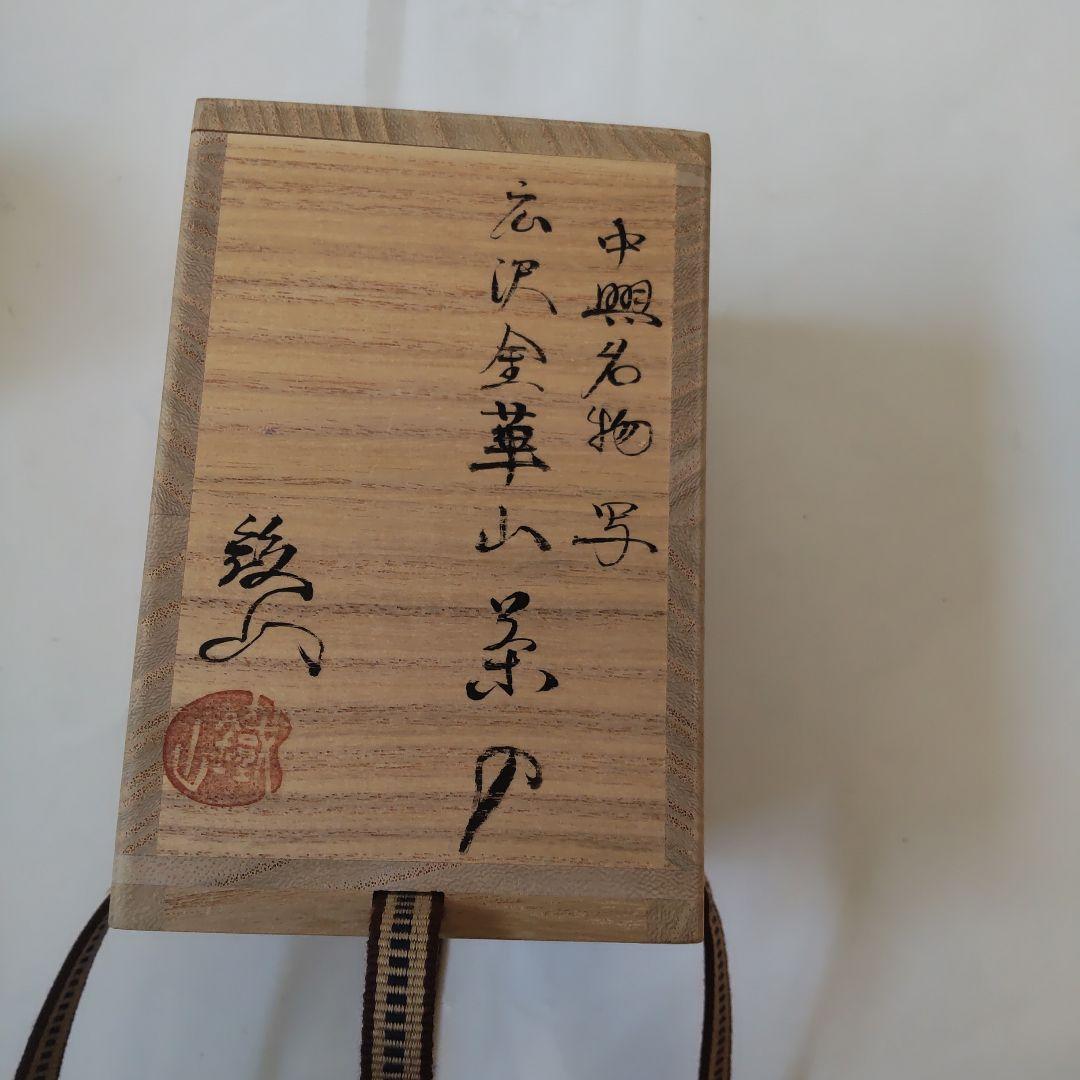 中興名物 写
広沢金華山 茶入
鉄山